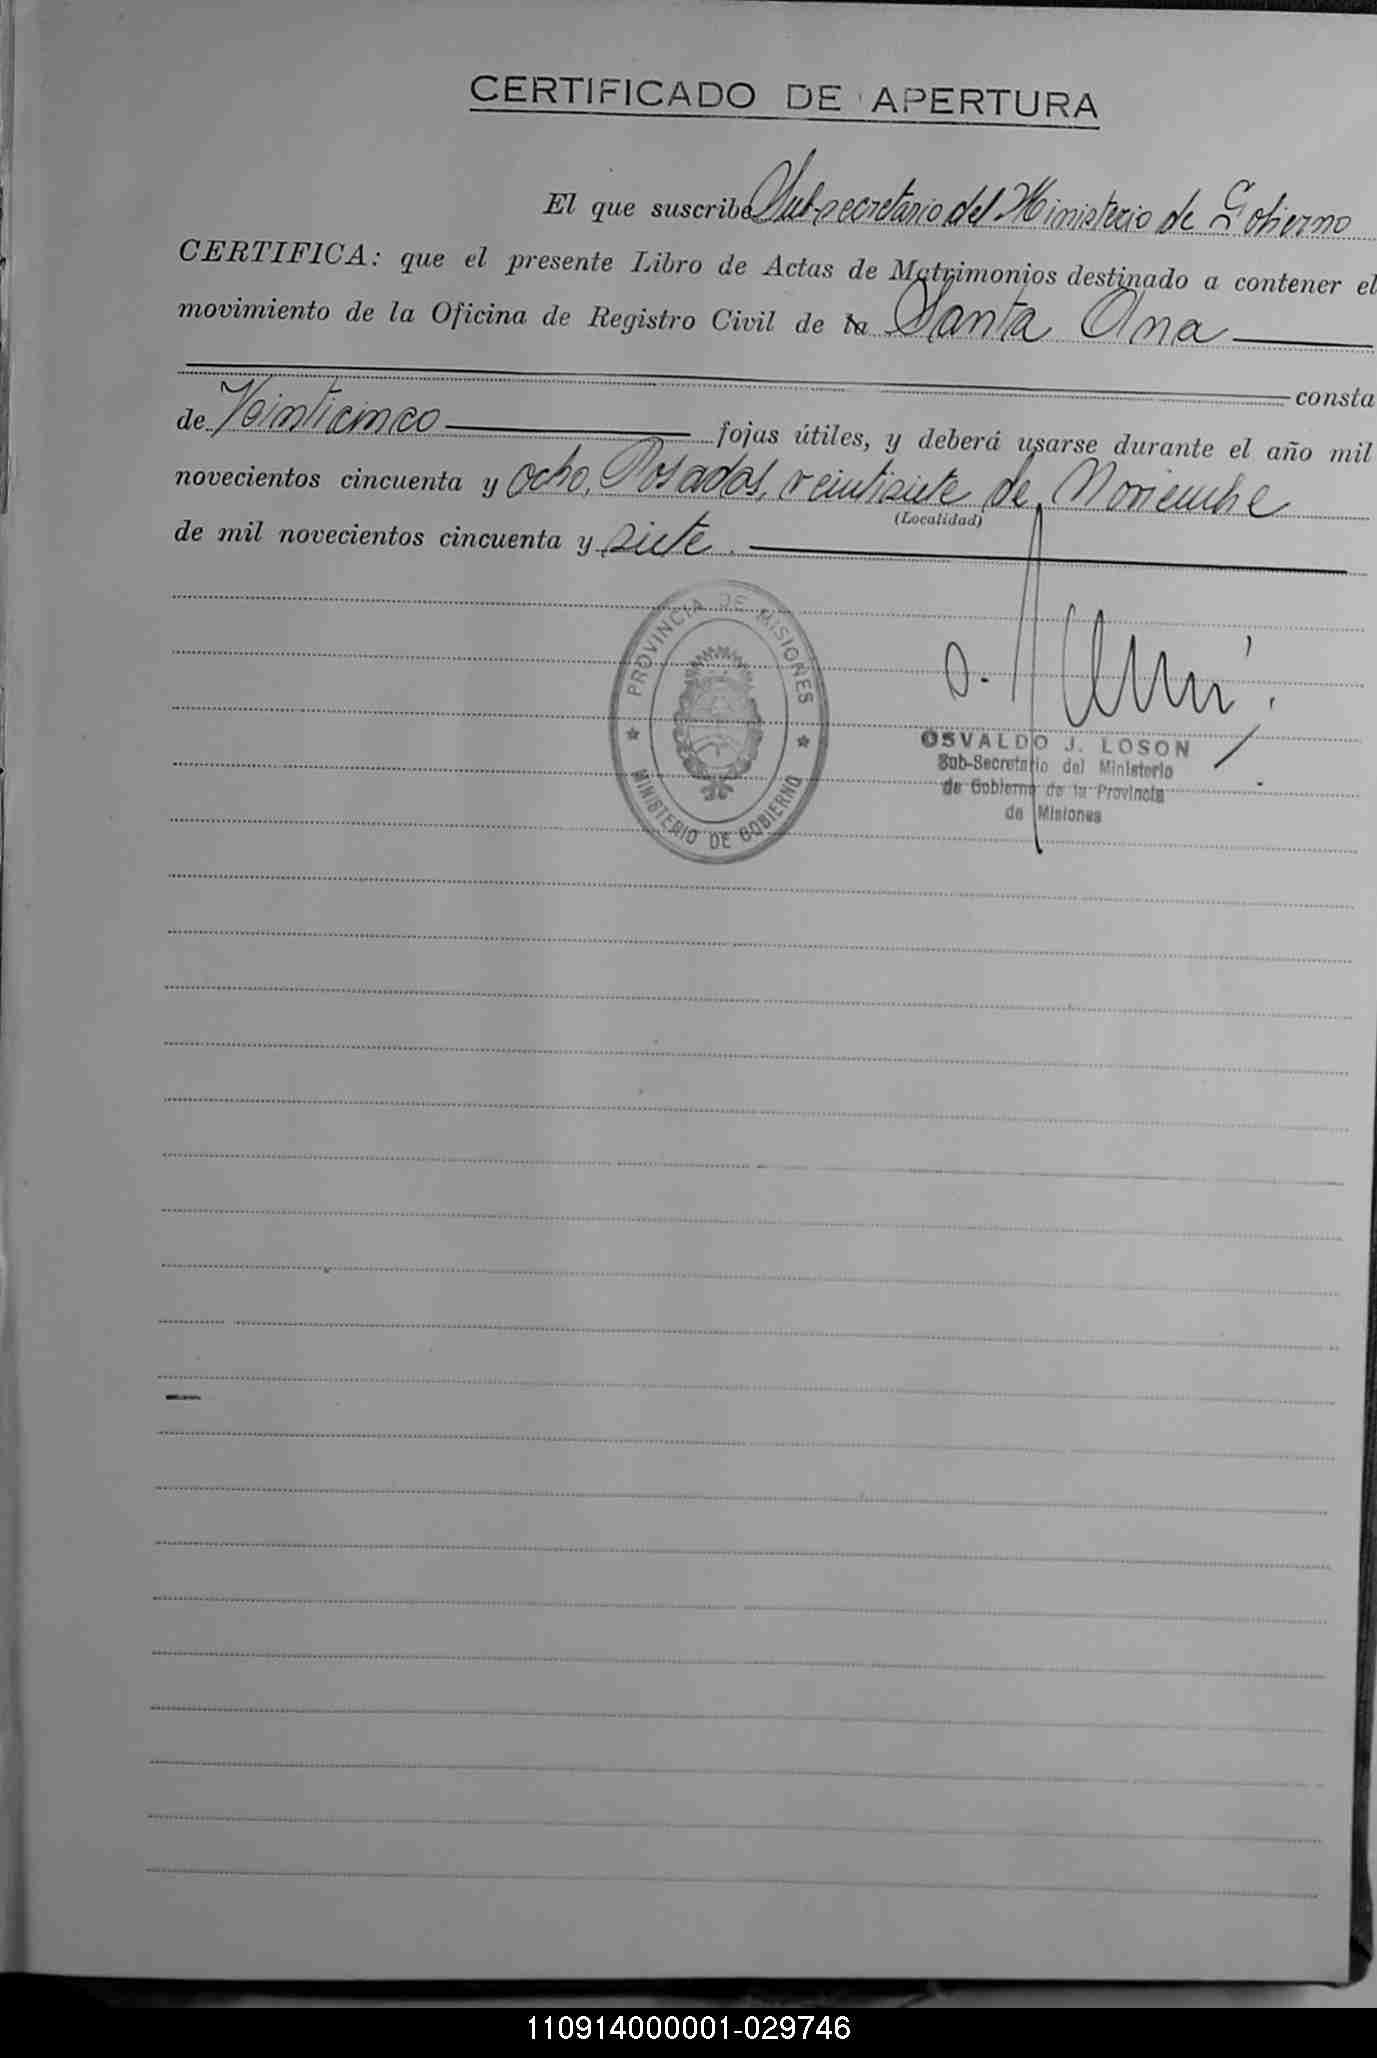 CERTIFICADO DE APERTURA
El que suscribe Sub-secretario del Ministerio de Gobierno
CERTIFICA: que el presente Libro de Actas de Matrimonios destinado a contener el
movimiento de la Oficina de Registro Civil de la Santa Ana
consta
de Veinticinco fojas útiles, y deberá usarse durante el año mil
novecientos cincuenta y ocho, Posadas, veintisiete de Noviembre
(Localidad)
de mil novecientos cincuenta y siete.
PROVINCIA DE MISIONES
MINISTERIO DE GOBIERNO
OSVALDO J. LOSON
Sub-Secretario del Ministerio
de Gobierno de la Provincia
de Misiones
110914000001-029746